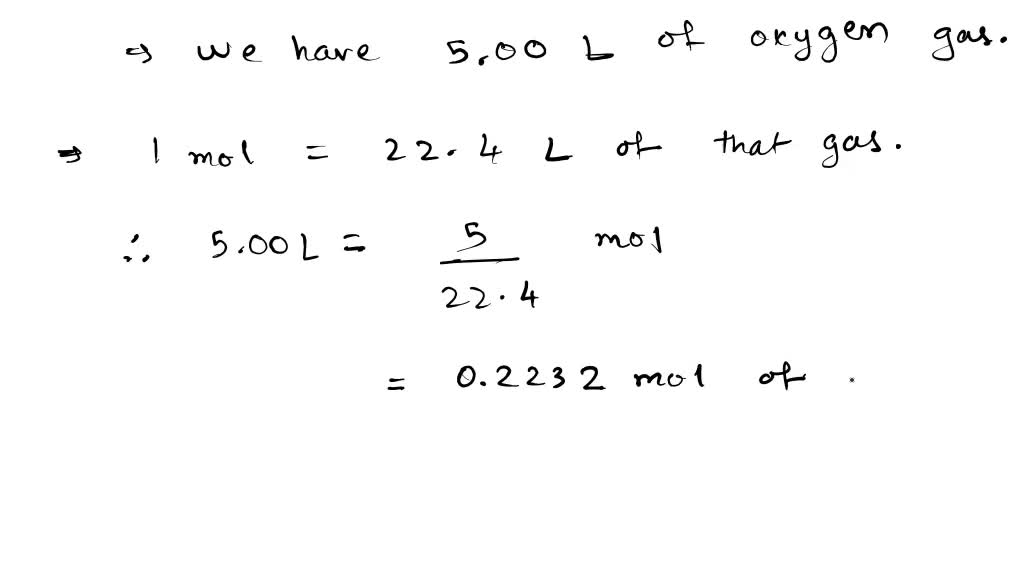 → we have 5.00 L of oxygen gas.
⇒ 1 mol = 22.4 L of that gas.
∴ 5.00 L = 5/22.4 mol
= 0.2232 mol of .